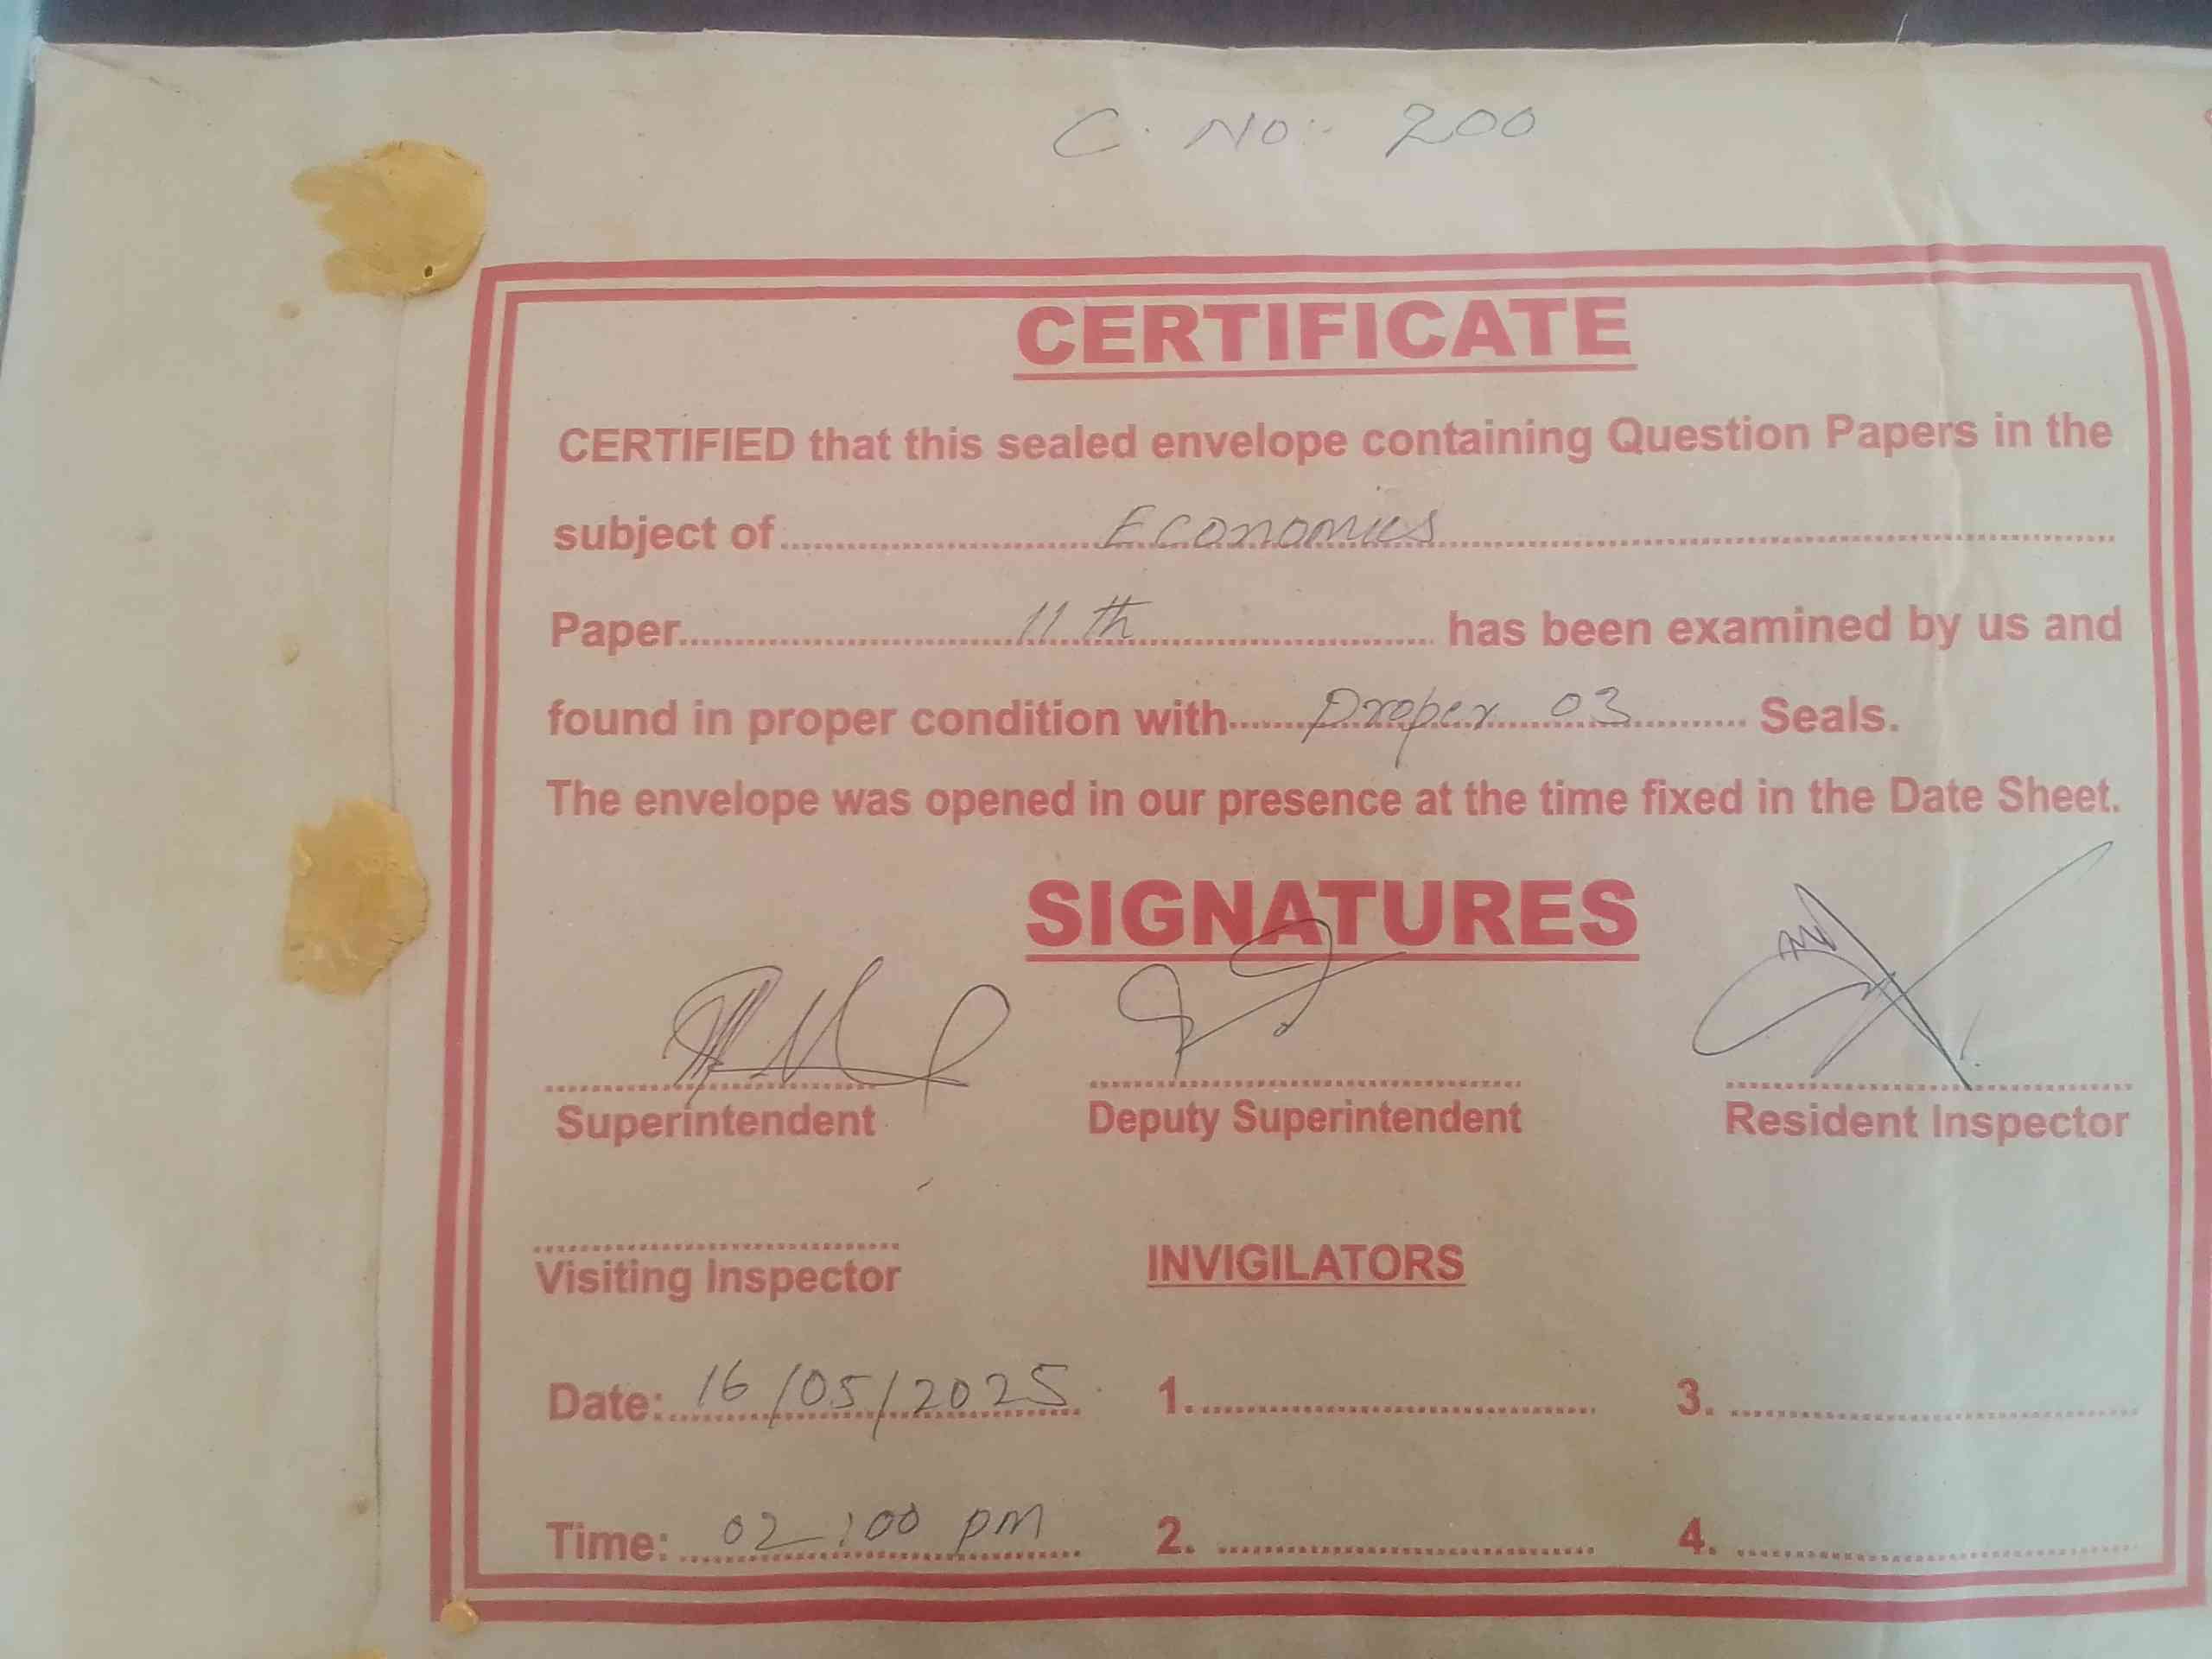 C. No:- 200
CERTIFICATE
CERTIFIED that this sealed envelope containing Question Papers in the
subject of Economics
Paper 11th has been examined by us and
found in proper condition with Proper 03 Seals.
The envelope was opened in our presence at the time fixed in the Date Sheet.
SIGNATURES
Superintendent Deputy Superintendent Resident Inspector
Visiting Inspector INVIGILATORS
Date: 16/05/2025 1. 3.
Time: 02:00 pm 2. 4.